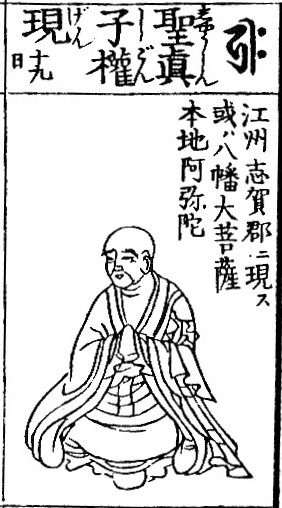 聖眞
子權
現
十九日
しごん
げん
江州志賀郡ニ現ス
或ハ八幡大菩薩
本地阿弥陀